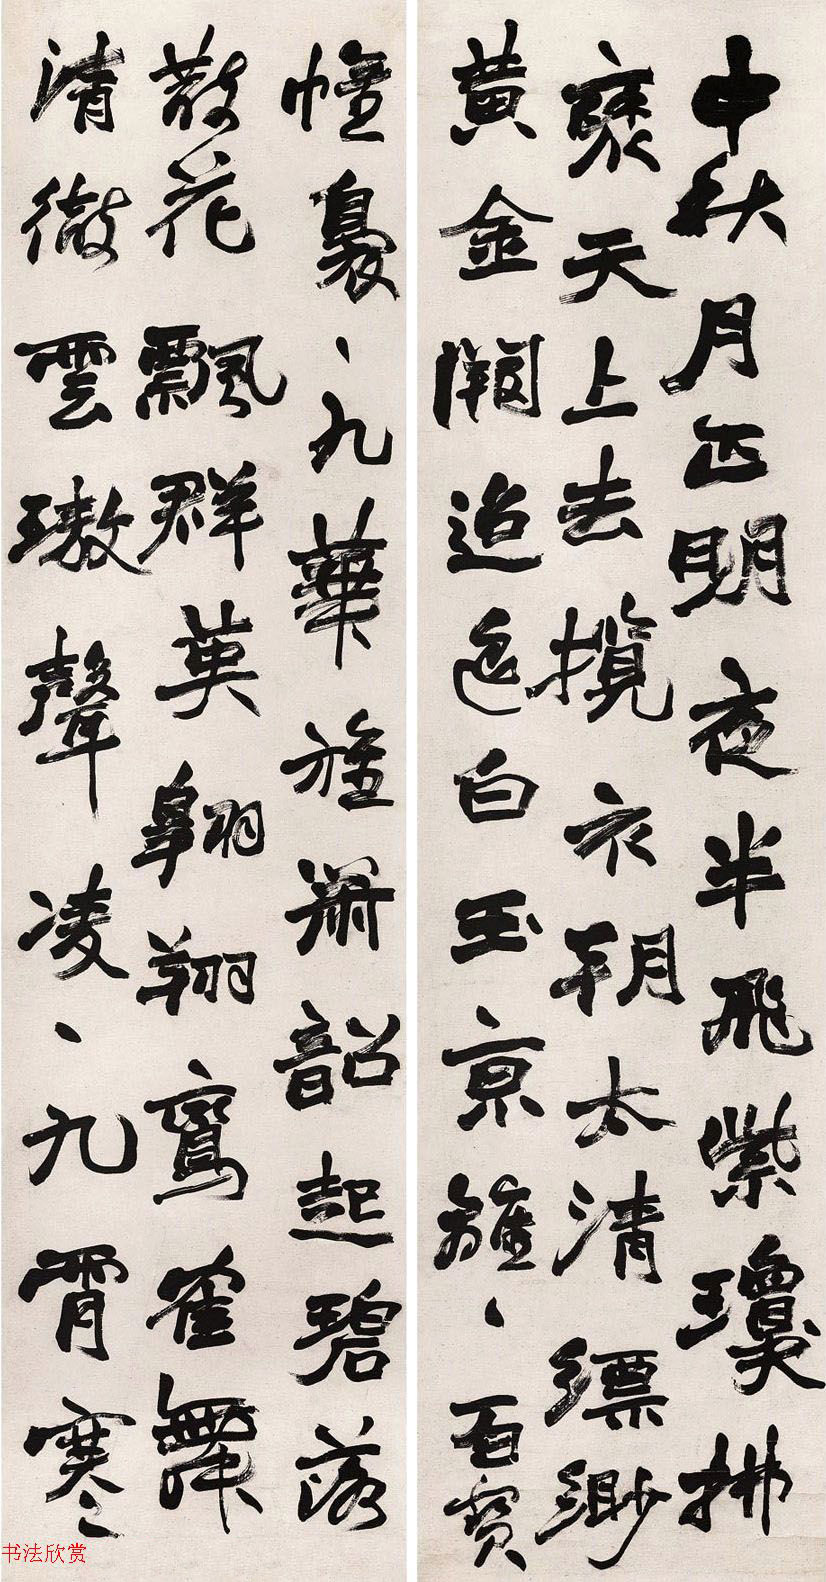 中秋月正明夜半飛紫瓊拂
褎天上去攬衣朝太清縹緲
黃金闕迢迢白玉京離々百寶
幢裊々九華旌簫韶起碧落
散花飄群英翱翔鸞雀舞
清徹雲璈聲凌々九霄寒
书法欣赏